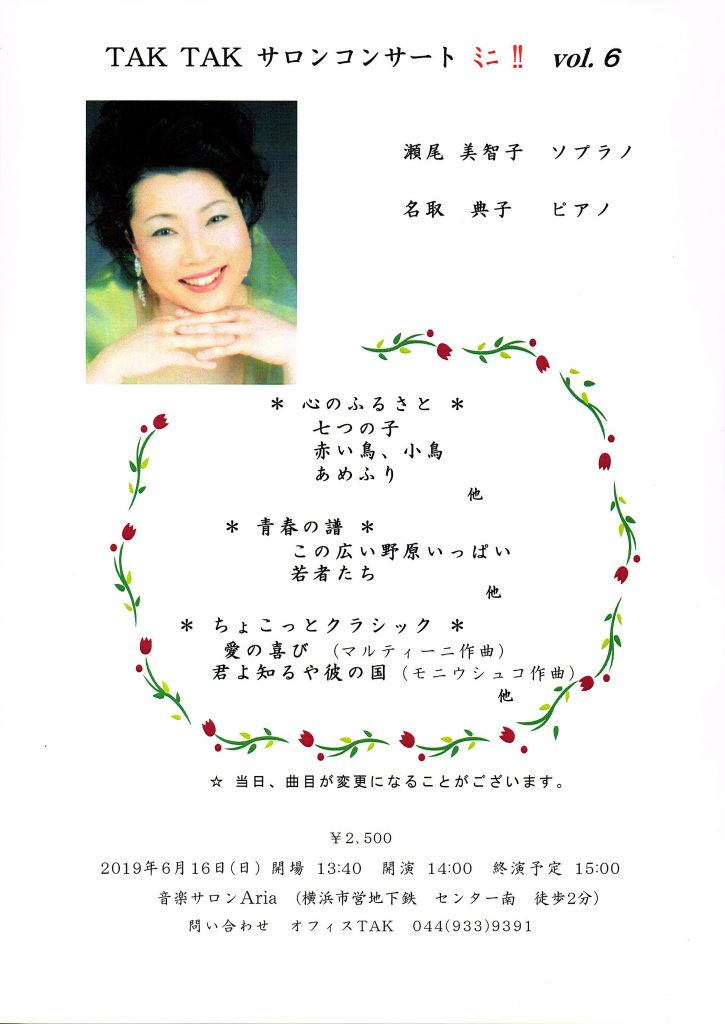 TAK TAK サロンコンサート ミニ !! vol. 6
瀬尾 美智子 ソプラノ
名取 典子 ピアノ
＊ 心のふるさと ＊
七つの子
赤い鳥、小鳥
あめふり
他
＊ 青春の譜 ＊
この広い野原いっぱい
若者たち
他
＊ ちょこっとクラシック ＊
愛の喜び （マルティーニ作曲）
君よ知るや彼の国（モニウシュコ作曲）
他
☆ 当日、曲目が変更になることがございます。
￥2,500
2019年6月16日(日) 開場 13:40 開演 14:00 終演予定 15:00
音楽サロンAria (横浜市営地下鉄 センター南 徒歩2分)
問い合わせ オフィスTAK 044(933)9391